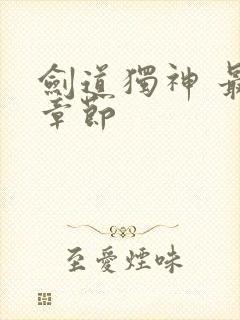 劍道獨神 最
章節
至愛煙味